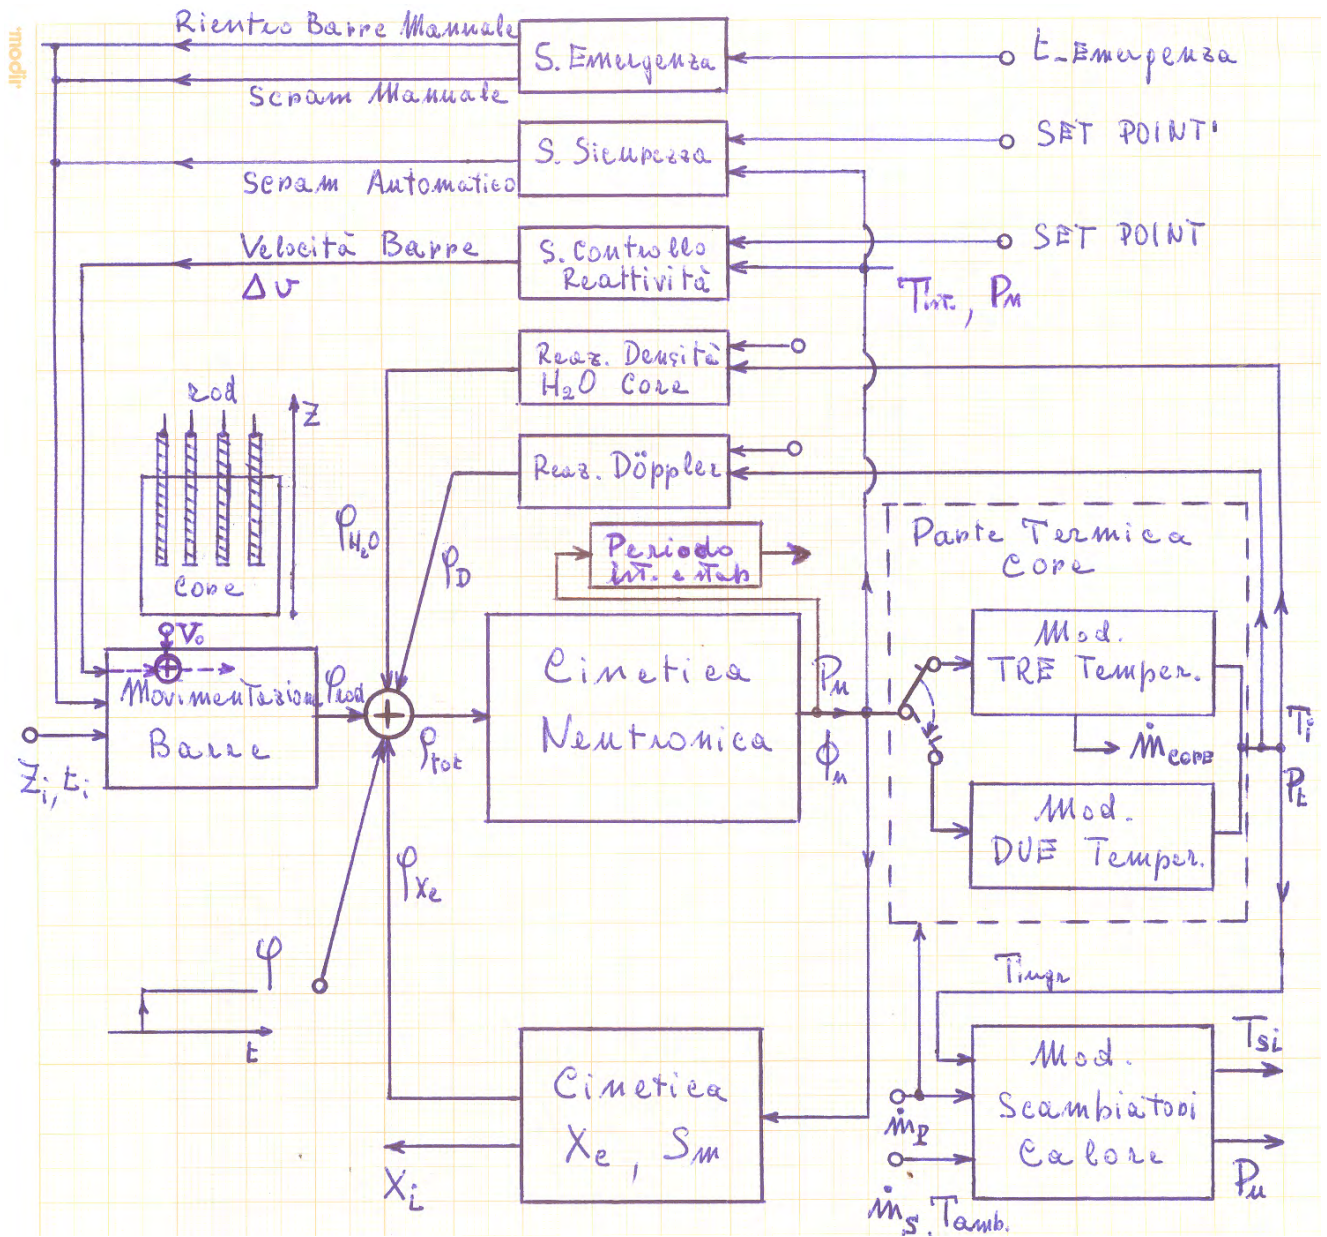 modir
Rientro Barre Manuale
S. Emergenza
t_Emergenza
Scram Manuale
SET POINT'
S. Sicurezza
Scram Automatico
Velocità Barre
Δv
S. Controllo
Reattività
SET POINT
Tint., Pn
Reaz. Densità
H₂O Core
rod
Z
Reaz. Döppler
φH₂O
φD
Core
Periodo
ist. e stab
Parte Termica
Core
Vo
Movimentazion.
Barre
φrod
Zi, ti
φtot
Cinetica
Neutronica
Pn
ϕn
Mod.
TRE Temper.
ṁcore
Ti
Pt
Mod.
DUE Temper.
φXe
φ
t
Tingr
Cinetica
Xe, Sm
Xi
ṁp
ṁs, Tamb.
Mod.
Scambiatori
Calore
Tsi
Pu